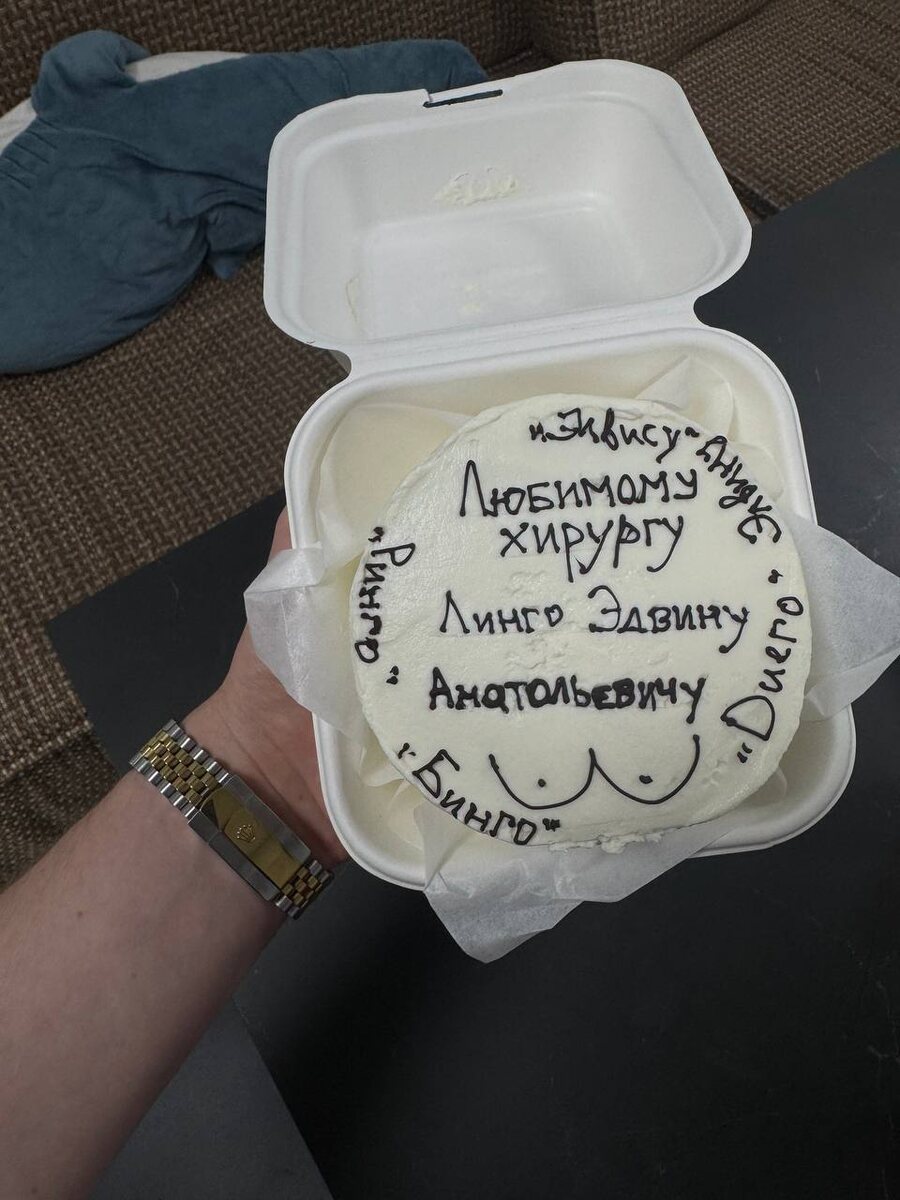 Любимому
хирургу
Линго Эдвину
Анатольевичу
"Элвису"
Эдвину
"Диего"
"Бинго"
"Ринго"